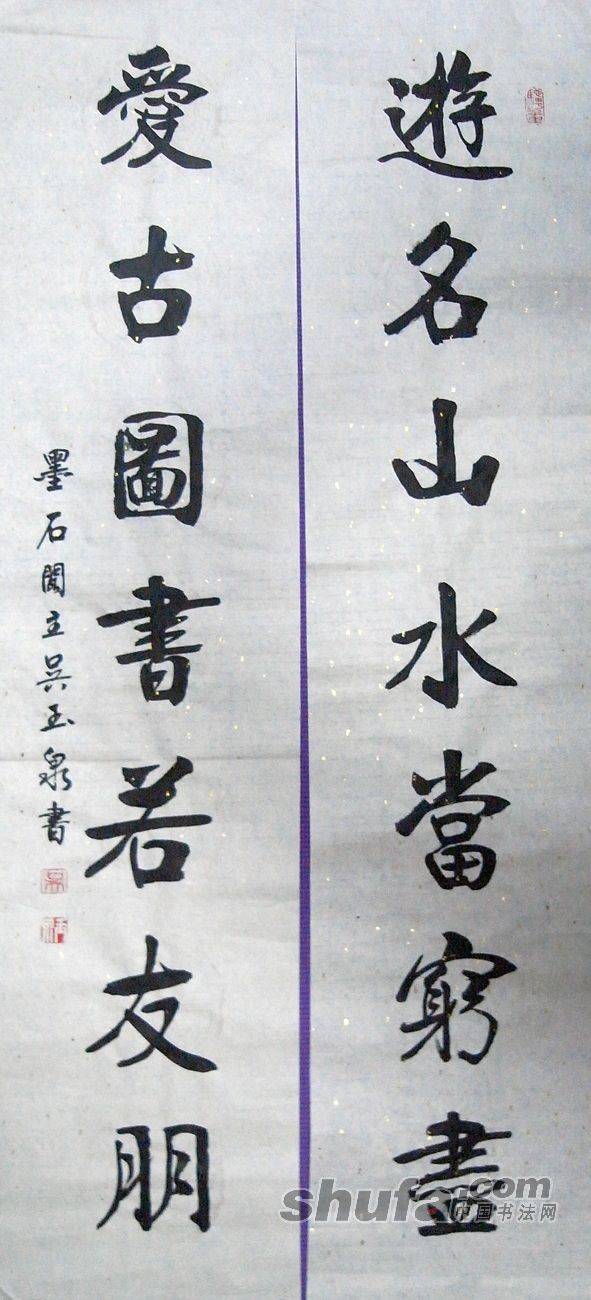 遊名山水當窮盡
愛古圖書若友朋
墨石閣主吳玉泉書
shufa.com
中国书法网